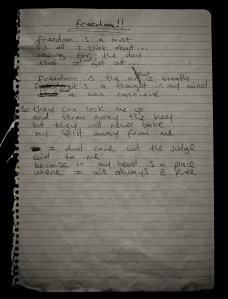 Freedom!!
Freedom is a must
is all I think about...
Waiting for the day
that I get out...
Freedom is the air that I breath
is a thought in my mind
a can concieve
So they can lock me up
and throw away the key
but they will never take
my spirit away from me
I dont care wot the Judge
said to me
because in my head is a place
where I will allways B free